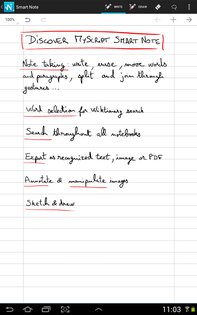 Smart Note
WRITE
DRAW
100%
DISCOVER MYSCRIPT SMART NOTE
Note taking: write, erase, move words
and paragraphs, split and join through
gestures ...
Word selection for Wiktionary search
Search throughout all notebooks
Export as recognized text, image or PDF
Annotate & manipulate images
Sketch & draw
11:03